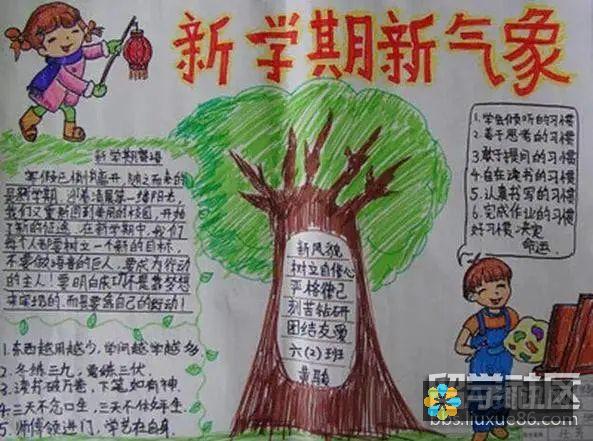 新学期新气象
新学期
寒假已悄悄离开,随之而来的
是新学期,沐着清晨第一缕阳光,
我们又重新回到美丽的校园,开始
了新的征途。在新学期中,我们
每个人都要树立一个新的目标,
不要做语言的巨人,要成为行动
的主人!要明白成功不是靠梦想
来实现的,而是要靠自己的行动!
1.东西越用越少,学问越学越多。
2.冬练三九,夏练三伏。
3.读书破万卷,下笔如有神。
4.三天不念口生,三天不做手生。
5.师傅领进门,学艺在自身
新风貌
树立自信心
严格律己
刻苦钻研
团结友爱
六(2)班
黄
1.学会倾听的习惯
2.善于思考的习惯
3.敢于提问的习惯
4.自在读书的习惯
5.认真书写的习惯
6.完成作业的习惯
好习惯,决定
命运。
留学社区
bbs.liuxue86.com